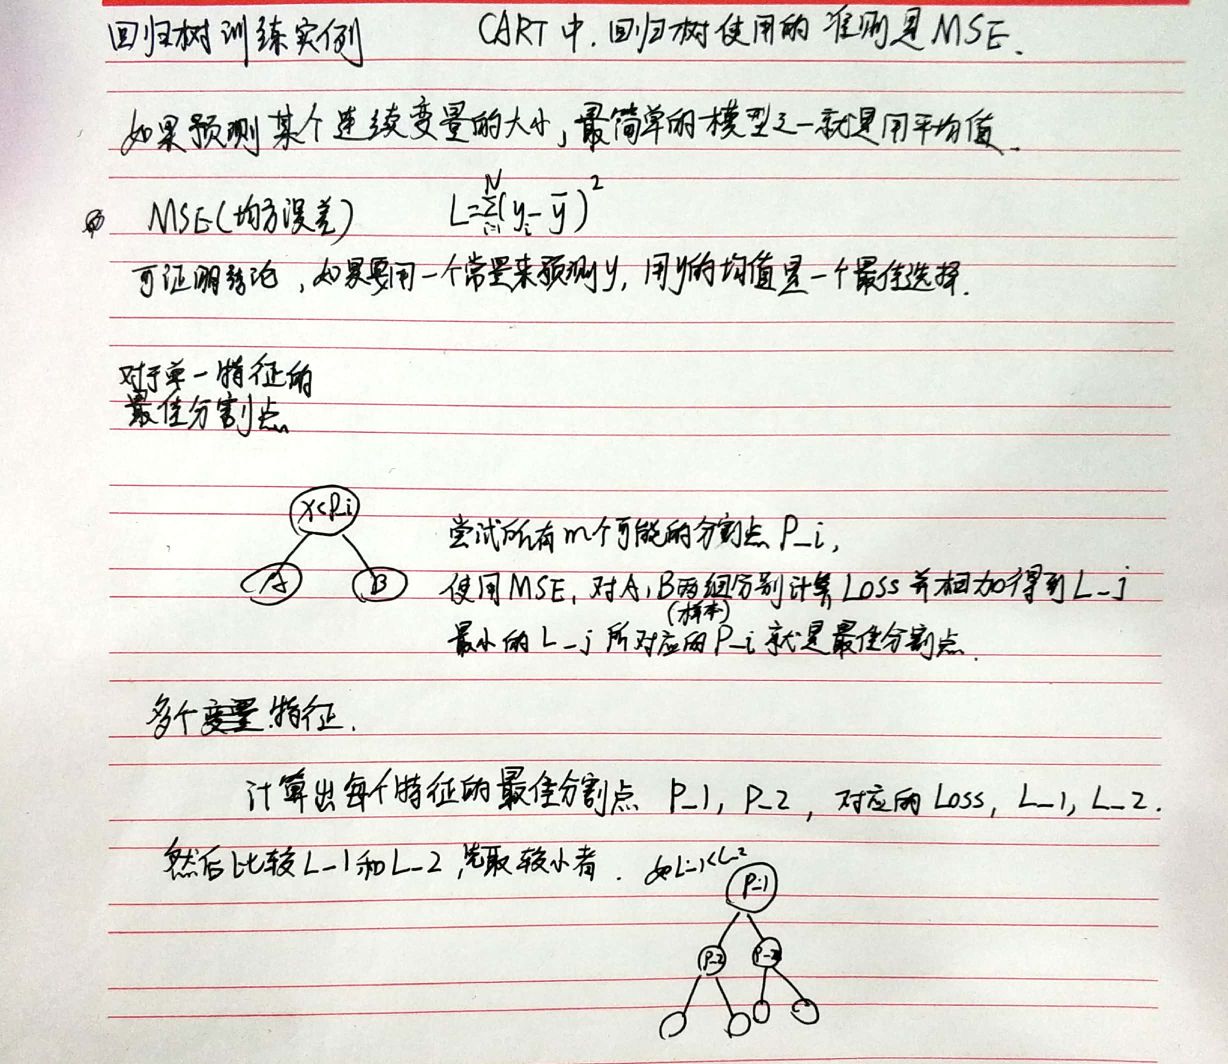 回归树训练实例 CART中.回归树使用的准则是MSE.
如果预测某个连续变量的大小,最简单的模型之一就是用平均值.
MSE(均方误差) L=Σ(y_i-ȳ)² i=1 N
可证明结论,如果要用一个常量来预测y,用y的均值是一个最佳选择.
对于单一特征的
最佳分割点
X<P_i
A B
尝试所有m个可能的分割点P_i,
使用MSE,对A,B两组分别计算Loss并相加得到L_j
(样本)
最小的L_j所对应的P_i就是最佳分割点.
多个变量特征.
计算出每个特征的最佳分割点 P_1, P_2, 对应的Loss, L_1, L_2.
然后比较L_1和L_2,先取较小者. 如L_1<L_2
P_1
P_2 P_2